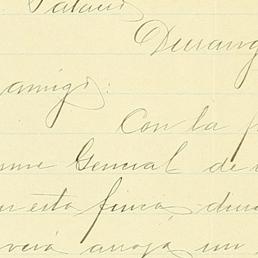 Palacio
Durang
amigo:
Con la
me General de
en esta finca, du
verá arroja un